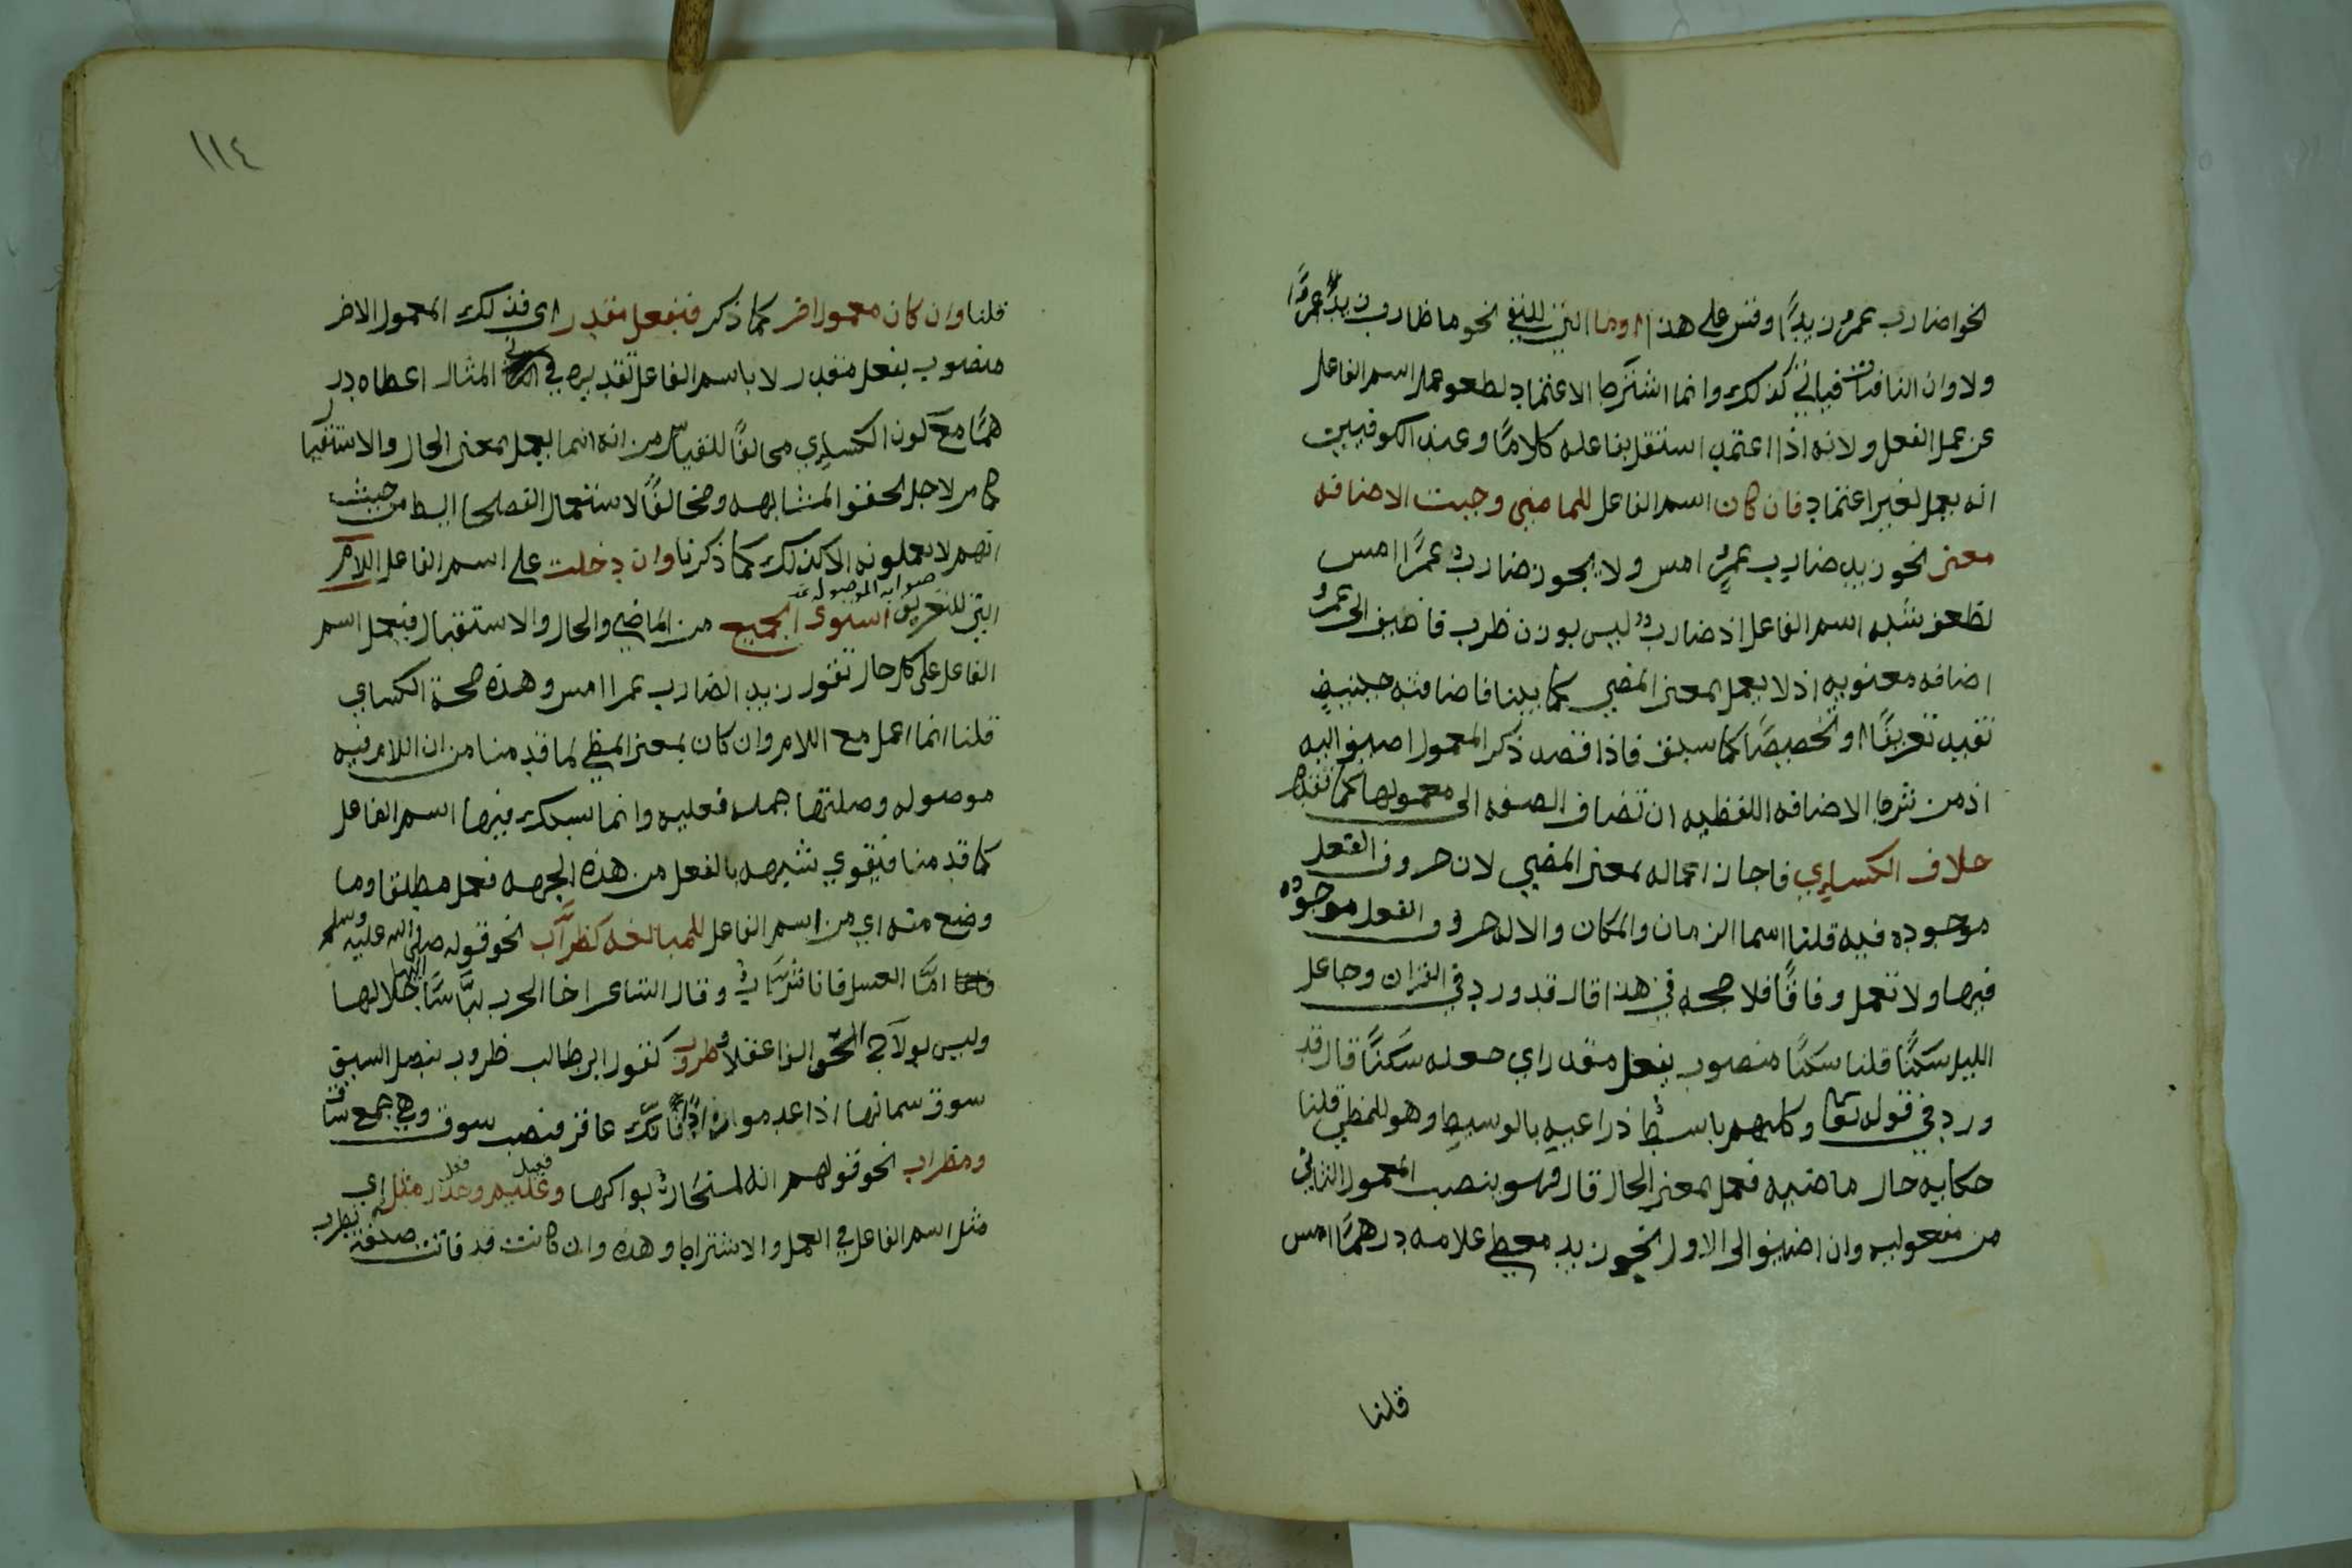 نحو اضارب عمرو زيدًا وقس على هذا اوما التي للنفي نحو ما ضارب زيدٌ عمرًا
ولا وان النافيتان فياتي كذلك وانما اشترط الاعتماد لضعف عمل اسم الفاعل
عن عمل الفعل ولانه اذا اعتمد استقل بفاعله كلامًا وعند الكوفيين
انه يعمل لغير اعتماد فان كان اسم الفاعل للماضي وجبت الاضافه
معنى نحو زيد ضارب عمرٍو امس ولا يجوز ضاربٌ عمرًا امس
لضعف شبه اسم الفاعل اذ ضاربٌ ليس بوزن ضرب فاضيف الى عمرٍو
اضافه معنويه اذ لا يعمل بمعنى المضي كما بينا فاضافته حينئيذٍ
تفيد تعريفًا او تخصيصًا كما سبق فاذا قصد ذكر المعمول اضيف اليه
اذ من شرط الاضافه اللفظيه ان تضاف الصفه الى معمولها كما تقدم
خلاف الكسايي فاجاز اعماله بمعنى المضي لان حروف الفعل
موجوده فيه قلنا اسما الزمان والمكان والاله حروف الفعل موجوده
فيها ولا تعمل وفاقًا فلا حجه في هذا قال قد ورد في القران وجاعل
الليل سكنًا قلنا سكنًا منصوب بفعل مقدر اي جعله سكنًا قال قد
ورد في قوله تعا وكلبهم باسطٌ ذراعيه بالوسيط وهو للمضي قلنا
حكايه حال ماضيه فعمل بمعنى الحال قال فهو ينصب المعمول الثاني
من مفعوليه وان اضيف الى الاول نحو زيد معطي غلامه درهمًا امس
قلنا
١١٤
قلنا وان كان معمول اخر كما ذكر فبفعل مقدر اي فذلك المعمول الاخر
منصوب بفعل مقدر لا باسم الفاعل تقديره في المثال اعطاه در
همًا مع كون الكسايي مخالفًا للقياس من انه انما يعمل بمعنى الحال والاستقبا
كما مر لاجل تحقق المشابهه ومخالفًا لاستعمال الفصحا ايضا من حيث
انهم لا يعملونه الا كذلك كما ذكرنا وان دخلت على اسم الفاعل اللام
صوابه الموصوله
التي للتعريف استوى الجميع من الماضي والحال والاستقبال فيعمل اسم
الفاعل على كل حال تقول زيد الضارب عمرا امس وهذه حجة الكساي
قلنا انما اعمل مع اللام وان كان بمعنى المضي لما قدمنا من ان اللام فيه
موصوله وصلتها جمله فعليه وانما سبك منها اسم الفاعل
كما قدمنا فيقوي شبهه بالفعل من هذه الجهه فعمل مطلقا وما
وضع منه اي من اسم الفاعل للمبالغه كضرَّاب نحو قوله صلى الله عليه وسلم
امَّا العسل فانا شرَّابٌ وقال الشاعر اخا الحرب لبَّاسًا اليها جلالها
وليس بولاج الخوالف اعقلا وضروب كقول ابي طالب ضروب بنصل السيف
سوق سمانها اذا عدموا زادًا فانك عاقر فنصب سوق وهي جمع ساق
ومضراب نحو قولهم انه لمنحارٌ بوائكها وعليم وحذر مثله اي
فعيل فعل
مثل اسم الفاعل في العمل والاشتراط وهذه وان كانت قد فاتت